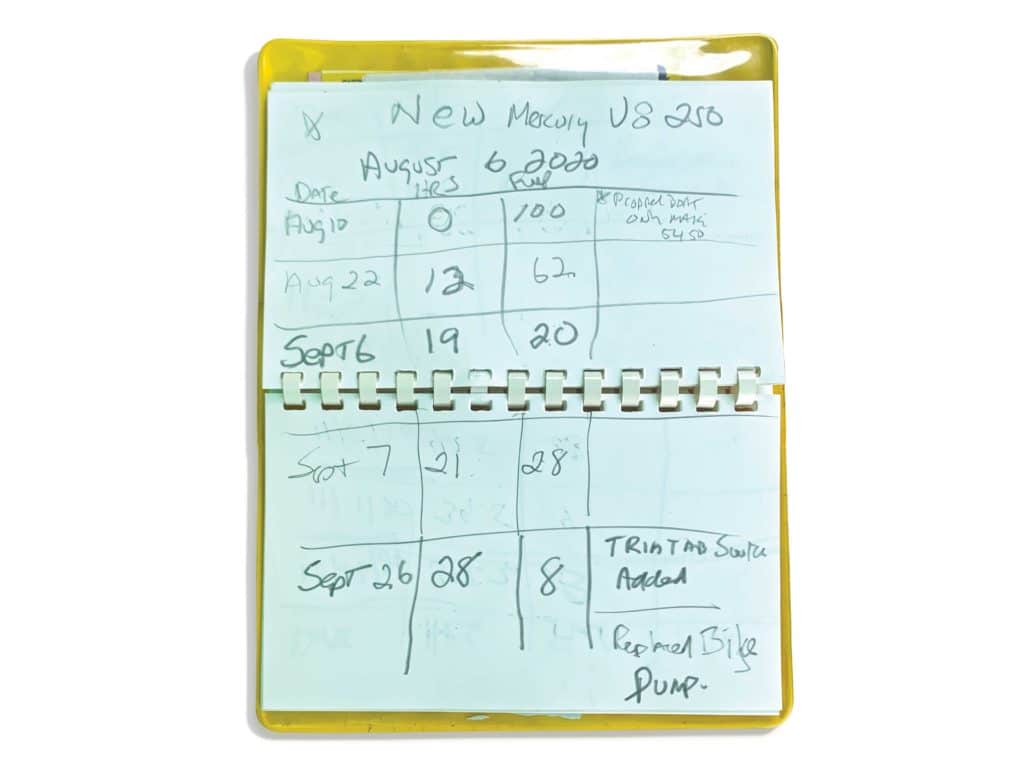 New Mercury V8 250
August 6 2020
Date HRS Fuel
Aug 10 0 100
only
5450
Aug 22 12 62
Sept 6 19 20
Sept 7 21 28
Sept 26 28 8
TRIM TAB
Added
Replaced Bilge
Pump.